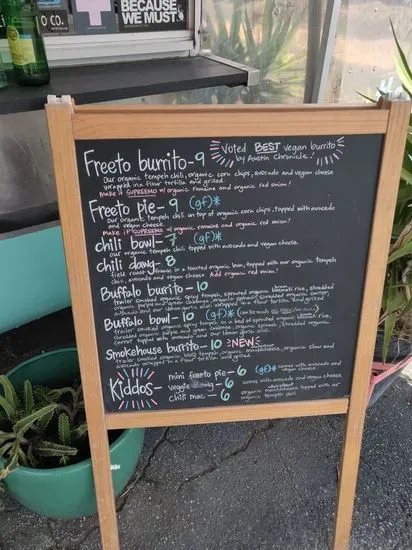 CO.
BECAUSE
WE MUST
Voted BEST vegan burrito
by Austin Chronicle!
Freeto burrito-9
Our organic tempeh chili, organic corn chips, avocado and vegan cheese
wrapped in a flour tortilla and grilled.
make it SUPREEMO w/ organic romaine and organic red onion!
Freeto pie-9 (gf)*
our organic tempeh chili on top of organic corn chips, topped with avocado
and vegan cheese.
Make it SUPREEMO w/ organic romaine and organic red onion!
chili bowl-7 (gf)*
our organic tempeh chili topped with avocado and vegan cheese
chili dawg-8
field roast frank in a toasted organic bun, topped with our organic tempeh
chili, avocado and vegan cheese. Add organic red onion!
Buffalo burrito-10
trailer smoked organic spicy tempeh, sprouted organic rice, shredded
organic purple and green cabbage, organic spinach, shredded organic carrot,
avocado and our lemon garlic aioli wrapped in a flour tortilla and grilled
Buffalo bowl-10 (gf)*
trailer smoked organic spicy tempeh on a bed of sprouted organic rice,
shredded organic purple and green cabbage, organic spinach, shredded organic
carrot topped with avocado and our lemon garlic aioli.
Smokehouse burrito-10 NEW
trailer smoked organic bbq tempeh, organic mac&cheese, organic slaw and
avocado wrapped in a flour tortilla and grilled.
Kiddos-
mini freeto pie-6 (gf)* comes with avocado and
vegan cheese
veggie dawg-6 comes with avocado and vegan cheese
chili mac-6 organic mac&cheese topped with our
organic tempeh chili